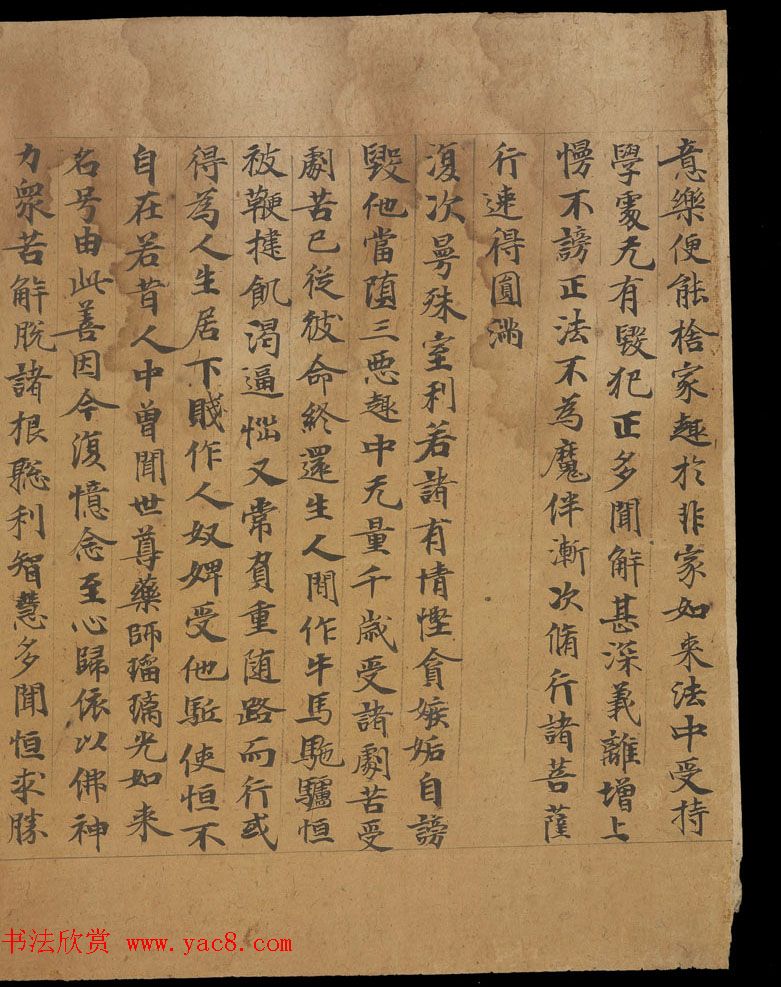 意樂便能捨家趣於非家如来法中受持
學處无有毀犯正多聞解甚深義離增上
慢不謗正法不為魔伴漸次脩行諸菩薩
行速得圓滿
復次曼殊室利若諸有情慳貪嫉妬自謗
毀他當墮三惡趣中无量千歲受諸劇苦受
劇苦已從彼命終還生人間作牛馬駞驢恒
被鞭撻飢渴逼惱又常負重随路而行或
得為人生居下賤作人奴婢受他駈使恒不
自在若昔人中曾聞世尊藥師瑠璃光如来
名号由此善因今復憶念至心歸依以佛神
力衆苦解脫諸根聡利智慧多聞恒求勝
书法欣赏 www.yac8.com